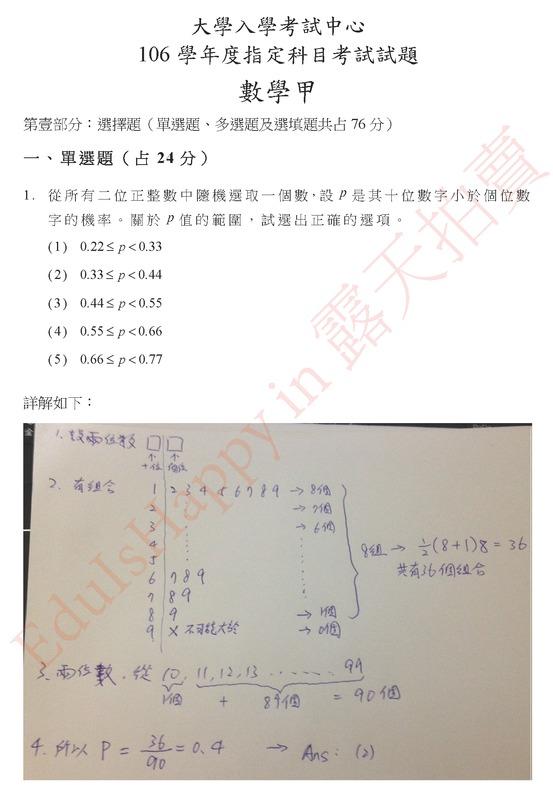 大學入學考試中心
106 學年度指定科目考試試題
數學甲
第壹部分：選擇題（單選題、多選題及選填題共占 76 分）
一、單選題（占 24 分）
1. 從所有二位正整數中隨機選取一個數，設 p 是其十位數字小於個位數
字的機率。關於 p 值的範圍，試選出正確的選項。
(1) 0.22 ≤ p < 0.33
(2) 0.33 ≤ p < 0.44
(3) 0.44 ≤ p < 0.55
(4) 0.55 ≤ p < 0.66
(5) 0.66 ≤ p < 0.77
詳解如下：
1. 設兩位數 □ □
↑ ↑
十位 個位
2. 有組合 1 2 3 4 5 6 7 8 9 → 8個
2 → 7個
3 → 6個
4
5
6 7 8 9
7 8 9
8 9 → 1個
9 × 不可能大於 → 0個
8組 → 1/2(8+1)8 = 36
共有36個組合
3. 兩位數，從 10, 11, 12, 13 ...... 99
1個 + 89個 = 90個
4. 所以 P = 36/90 = 0.4 → Ans: (2)
EduIsHappy in 露天拍賣